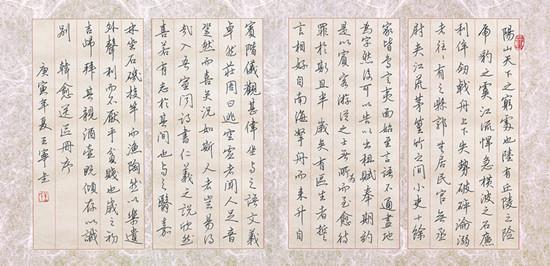 陽山天下之窮處也陸有丘陵之險
虎豹之虞江流悍急橫波之石廉
利侔劍戟舟上下失勢破碎淪溺
者往往有之縣郭無居民官無丞
尉夾江荒茅篁竹之間小吏十餘
家皆鳥言夷面始至言語不通畫地
為字然後可告以出租賦奉期約
是以賓客游從之士無所為而至愈待
罪於斯且半歲矣有區生者誓
言相好自南海挐舟而來升自
賓階儀觀甚偉坐與之語文義
卓然莊周曰逃空虛者聞人足音
跫然而喜矣況如斯人者豈易得
哉入吾室聞詩書仁義之說欣然
喜若有志於其間也與之翳嘉
林坐石磯投竿而漁陶然以樂遺
外聲利而不厭乎貧賤也歲之初
吉歸拜其親酒壺既傾序以識
別 韓愈送區冊序
庚寅年夏王寧書